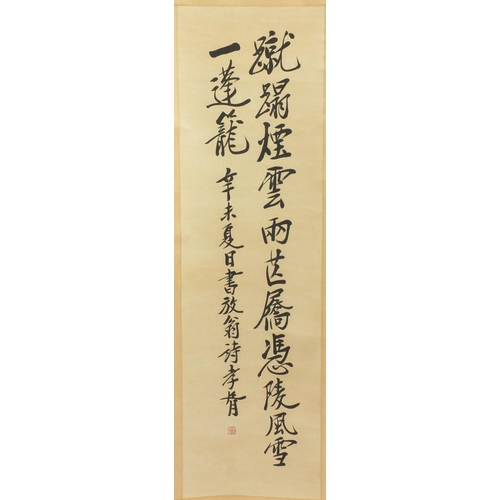 蹴蹋煙雲兩芒屩憑陵風雪
一蓬籠 辛未夏日書放翁詩孝胥